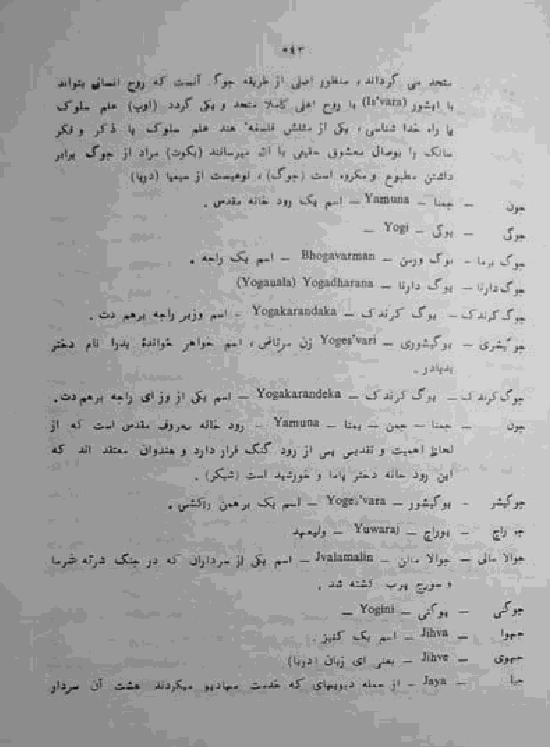 ۵۴۳
متحد می گرداند، منظور اصلی از طریقه جوگ آنست که روح انسانی بتواند
با ایشور (Is'vara) یا روح اعلی کاملا متحد و یکی گردد (اوپ) علم سلوک
یا راه خدا شناسی، یکی از فلسفه هند علم سلوک یا ذکر و فکر
سالک را بوصال معشوق حقیقی با آن میرسانند (بگوت) مراد از جوگ برابر
داشتن مطبوع و مکروه است (جوگ)، نوعیست از سیمیا (دوپا)
جون – جمنا – Yamuna – اسم یک رود خانه مقدس.
جوگی – یوگی – Yogi –
جوگ برما – بوگ ورمن – Bhogavarman – اسم یک راجه.
جوگ دارنا – یوگ دارنا – Yogadharana (Yogauala)
جوگ کرندک – یوگ کرندک – Yogakarandaka – اسم وزیر راجه برهم دت.
جوگیشری – یوگیشوری – Yoges'vari زن مرتاض، اسم خواهر خواندهٔ پدرا نام دختر
بدیادر.
جوگ کرندک – یوگ کرندک – Yogakarandeka – اسم یکی از وزرای راجه برهم دت.
جون – جمنا – جمن – یمنا – Yamuna – رود خانه معروف مقدس است که از
لحاظ اهمیت و تقدیس پس از رود گنگ قرار دارد و هندوان معتقد اند که
این رود خانه دختر یاما و خورشید است (شیکر).
جوگیشر – یوگیشور – Yoges'vara – اسم یک برهمن راکشی.
جو راج – یوراج – Yuwaraj – ولیعهد
جوالا مالی – جوالا مالن – Jvalamalin – اسم یکی از سرداران که در جنگ شرته شرما
و سورج پرب کشته شد.
جوگی – یوگنی – Yogini –
جهوا – Jihva – اسم یک کنیز.
جهوی – Jihve – یعنی ای زبان (دوپا)
جیا – Jaya – از جمله دیویهای که خدمت مهادیو میکردند هشت آن سردار